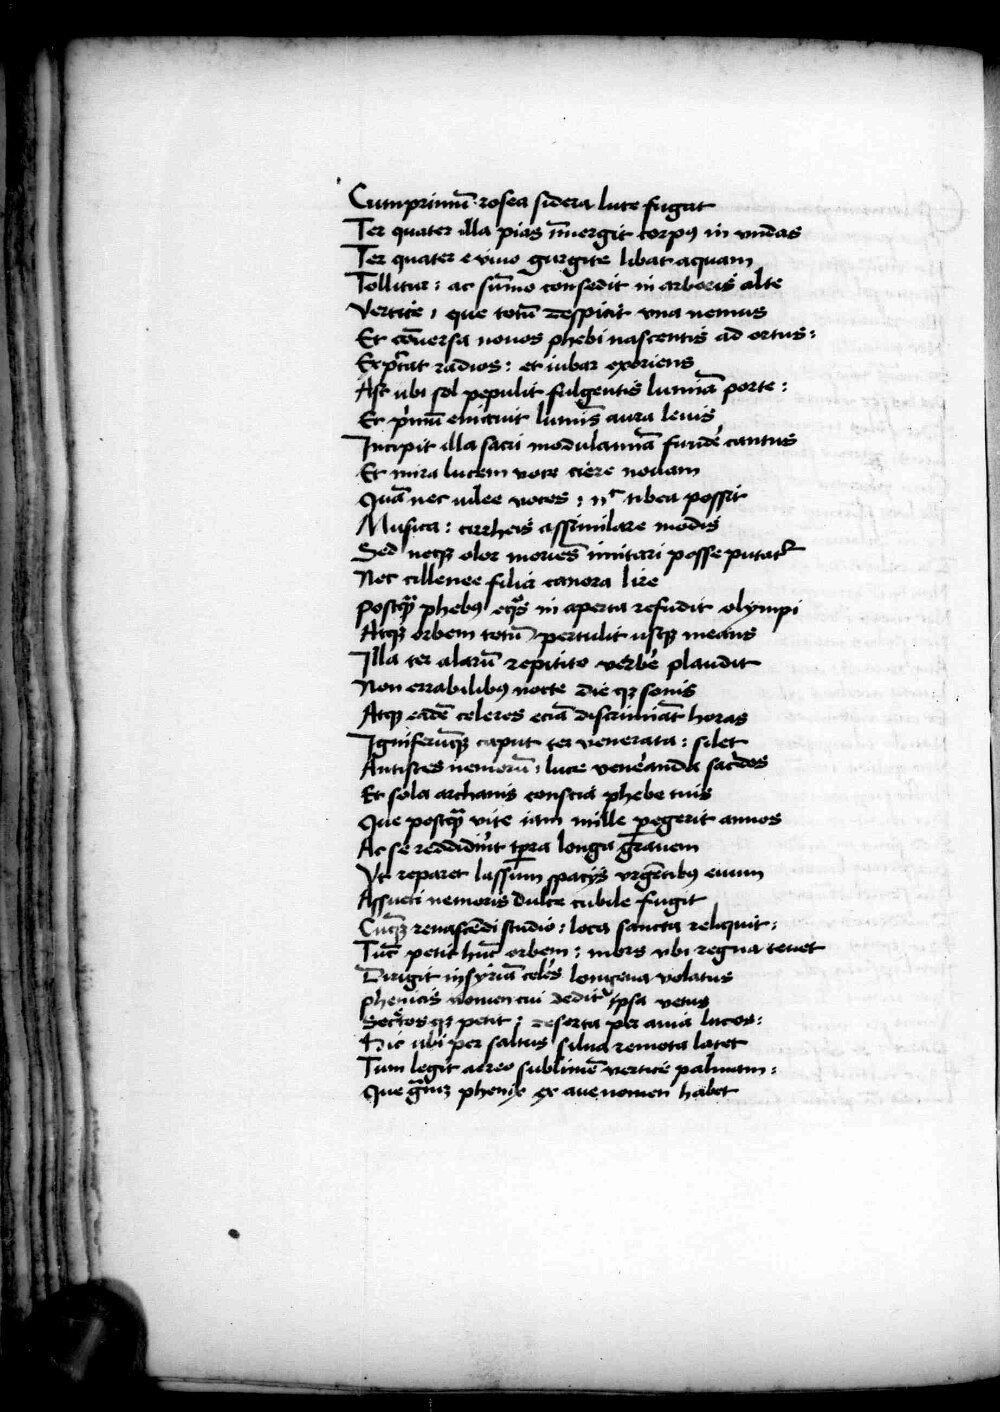 Cumprimū rosea sidera luce fugat
Ter quater illa pias īmergit corpꝰ in vndas
Ter quater e viuo gurgite libat aquam
Tollitur : ac sūmo consedit in arboris alte
Vertice , que totū despicit vna nemus
Et cōuersa nouos phebi nascentis ad ortus :
Exp̄ctat radios : et iubar exoriens
Ast ubi sol pepulit fulgentis lumīa porte :
Et p̓mū emicuit lumīs aura leuis
Incipit illa sacri modulamīa fundē cantus
Et mira lucem voce ciere nouam
Quā nec uilee voces : nᶜ tibea possit
Musica : cirrheis assimilare modis
Sed neqꝫ olor moriēs imitari posse putatᷣ
Nec cillenee filia canora lire
Postqᷓ phebꝰ eqᷤs in aperta refudit olympi
Atqꝫ orbem totū pertulit usqꝫ means
Illa ter alarū repitito verbē plaudit
Non errabilibꝰ nocte die qꝫ sonis
Atqꝫ eadē celeres eciā discrimīat horas
Igniferūqꝫ caput ter venerata : silet
Antistes nemorū : luce veneranda sac̓dos
Et sola archanis conscia phebe tuis
Que postqᷓ vite iam mille ꝑegerit annos
Ac se reddidīut tꝑra longa grauem
Vt reparet lassum spacijs vrgētibꝰ euum
Assueti nemoris dulce cubile fugit
Cūqꝫ renascēdi studio : loca sancta reliquit :
Tūc petit hūc orbem : mors vbi regna tenet
Dirigit in syriā celēs longeua volatus
phenicis nomen cui deditᷣ ipsa vetus
Secᷤtos qꝫ petit : deserta per auia lucos :
Hic ubi per saltus silua remota latet
Tum legit aereo sublimē vertice palmam :
Que gᷓiuꝫ phenix ex aue nomen habet